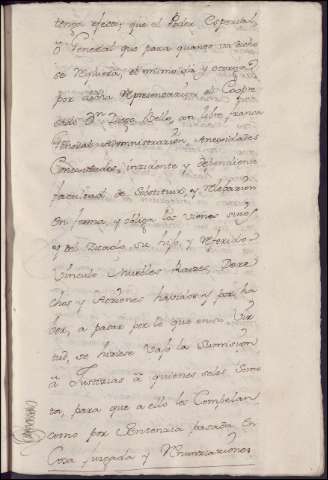 tenga efecto; que el Poder Especial,
ó General que para quanto va dicho
se requiera, el mismo da y otorga
por dicha representacion el expre
sado Dn. Diego Bello, con libre, franca
General Administracion, Anexidades
Conexidades, incidente y dependiente
facultad de Substituir, y relevacion
en forma y obliga los vienes suyos
y del Estado, su hijo, y referido
Vinculo Muebles, Raices, Dere
chos y Acciones havidos y por ha
ber, a pasar por lo que en su Vir
tud, se hiciese vajo la Sumision
á Justicias á quienes se les Some
ta, para que a ello les Compelan
como por Sentencia pasada en
Cosa juzgada y renunciaciones